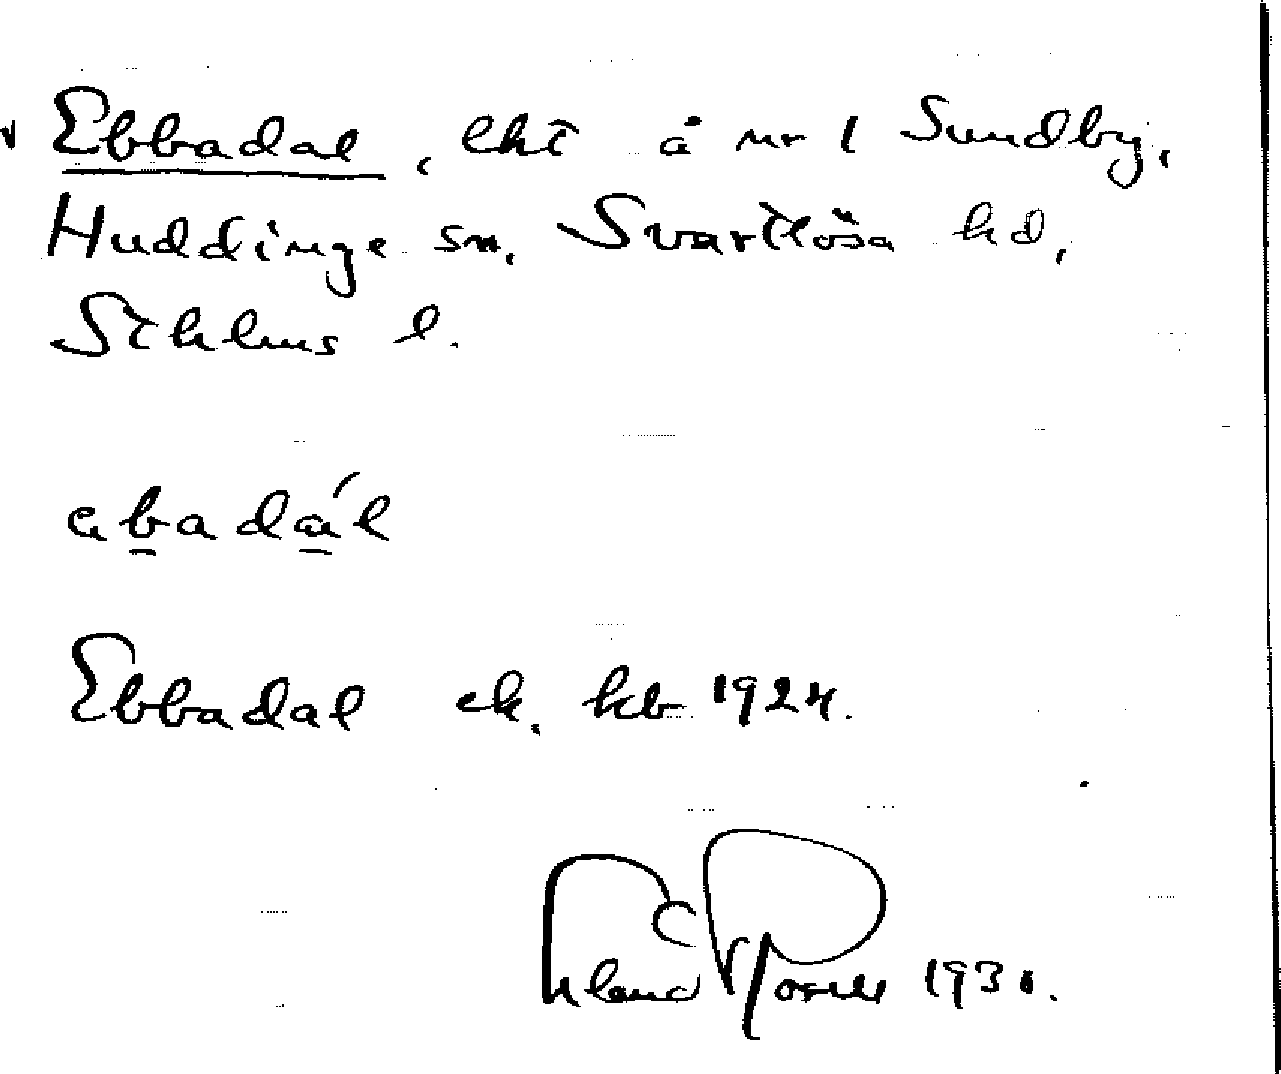 v Ebbadal, lht å nr 1 Sundby,
Huddinge sn, Svartlösa hd,
Sthlms l.
ebadál
Ebbadal ek. kb 1924.
Erland Rosell 1931.